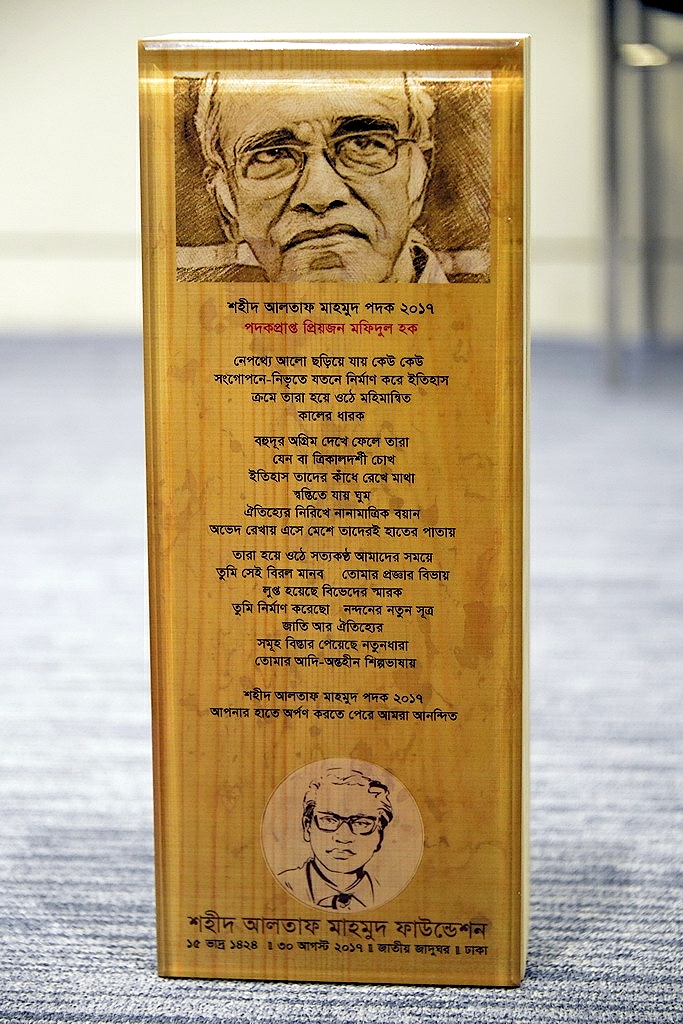 শহীদ আলতাফ মাহমুদ পদক ২০১৭
পদকপ্রাপ্ত প্রিয়জন মফিদুল হক
নেপথ্যে আলো ছড়িয়ে যায় কেউ কেউ
সংগোপনে-নিভৃতে যতনে নির্মাণ করে ইতিহাস
ক্রমে তারা হয়ে ওঠে মহিমান্বিত
কালের ধারক
বহুদূর অগ্রিম দেখে ফেলে তারা
যেন বা ত্রিকালদর্শী চোখ
ইতিহাস তাদের কাঁধে রেখে মাথা
স্বস্তিতে যায় ঘুম
ঐতিহ্যের নিরিখে নানামাত্রিক বয়ান
অভেদ রেখায় এসে মেশে তাদেরই হাতের পাতায়
তারা হয়ে ওঠে সত্যকণ্ঠ আমাদের সময়ে
তুমি সেই বিরল মানব তোমার প্রজ্ঞার বিভায়
লুপ্ত হয়েছে বিভেদের স্মারক
তুমি নির্মাণ করেছো নন্দনের নতুন সূত্র
জাতি আর ঐতিহ্যের
সমূহ বিস্তার পেয়েছে নতুনধারা
তোমার আদি-অন্তহীন শিল্পভাষায়
শহীদ আলতাফ মাহমুদ পদক ২০১৭
আপনার হাতে অর্পণ করতে পেরে আমরা আনন্দিত
শহীদ আলতাফ মাহমুদ ফাউন্ডেশন
১৫ ভাদ্র ১৪২৪ ॥ ৩০ আগস্ট ২০১৭ ॥ জাতীয় জাদুঘর ॥ ঢাকা